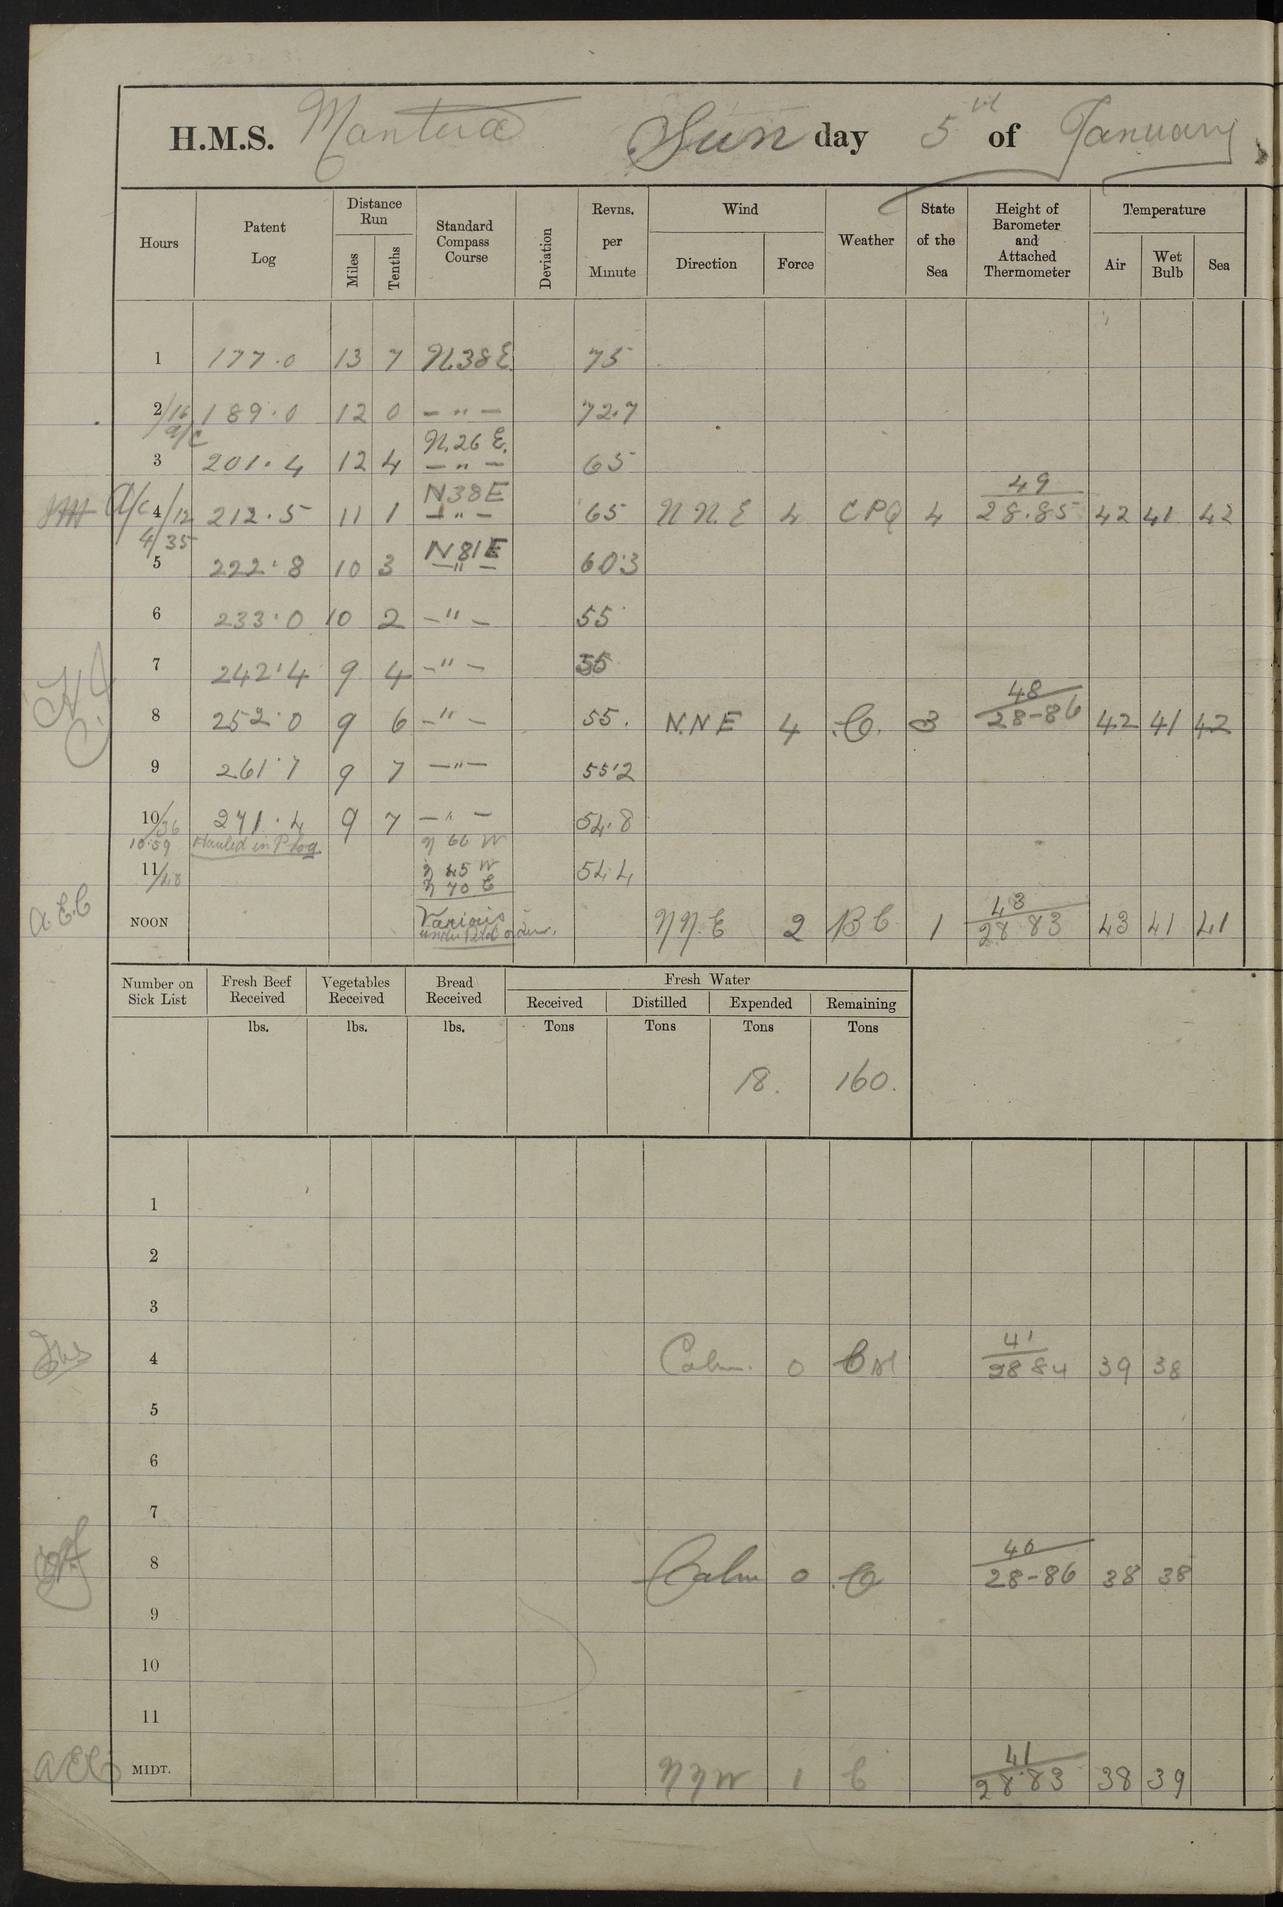 H.M.S. Mantua Sunday 5th of January
Hours Patent Log Distance Run Miles Tenths Standard Compass Course Deviation Revns. per Minute Wind Direction Force Weather State of the Sea Height of Barometer and Attached Thermometer Temperature Air Wet Bulb Sea
1 177.0 13 7 N38E 75
2/16 189.0 12 0 - " - 72.7
a/c N.26E.
3 201.4 12 4 - " - 65
N38E 49
a/c 4/12 212.5 11 1 - " - 65 NNE 4 CPQ 4 28.85 42 41 42
4/35 N81E
5 222.8 10 3 - " - 60.3
6 233.0 10 2 - " - 55
7 242.4 9 4 - " - 55
48
8 252.0 9 6 - " - 55. N.NE 4 .C. 3 28-86 42 41 42
9 261.7 9 7 - " - 55.2
10/36 271.4 9 7 - " - 54.8
10.59 Hauled in P log N 66 W
11/48 N 45 W 54.4
N 70 E
48
a.E.C NOON Various NN.E 2 BC 1 28 83 43 41 41
Number on Sick List Fresh Beef Received Vegetables Received Bread Received Fresh Water
Received Distilled Expended Remaining
lbs. lbs. lbs. Tons Tons Tons Tons
18. 160.
1
2
3
41
4 Calm. 0 28 84 39 38
5
6
7
40
8 Calm 0 C 28-86 38 38
9
10
11
41
AEC MIDT. NNW 1 C 28.83 38 39